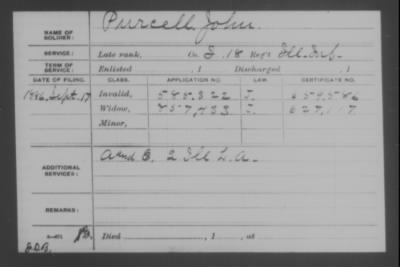 NAME OF SOLDIER: Purcell, John.
SERVICE: Late rank, Co. I, 18 Reg't Ill. Inf.
TERM OF SERVICE: Enlisted , 1 Discharged , 1
DATE OF FILING. CLASS. APPLICATION NO. LAW. CERTIFICATE NO.
1886, Sept. 17 Invalid, 585,822 J. 659,586
Widow, 857,433 J. 627,117
Minor,
ADDITIONAL SERVICES: A and B. 2 Ill L.A.
REMARKS:
Died , 1 , at